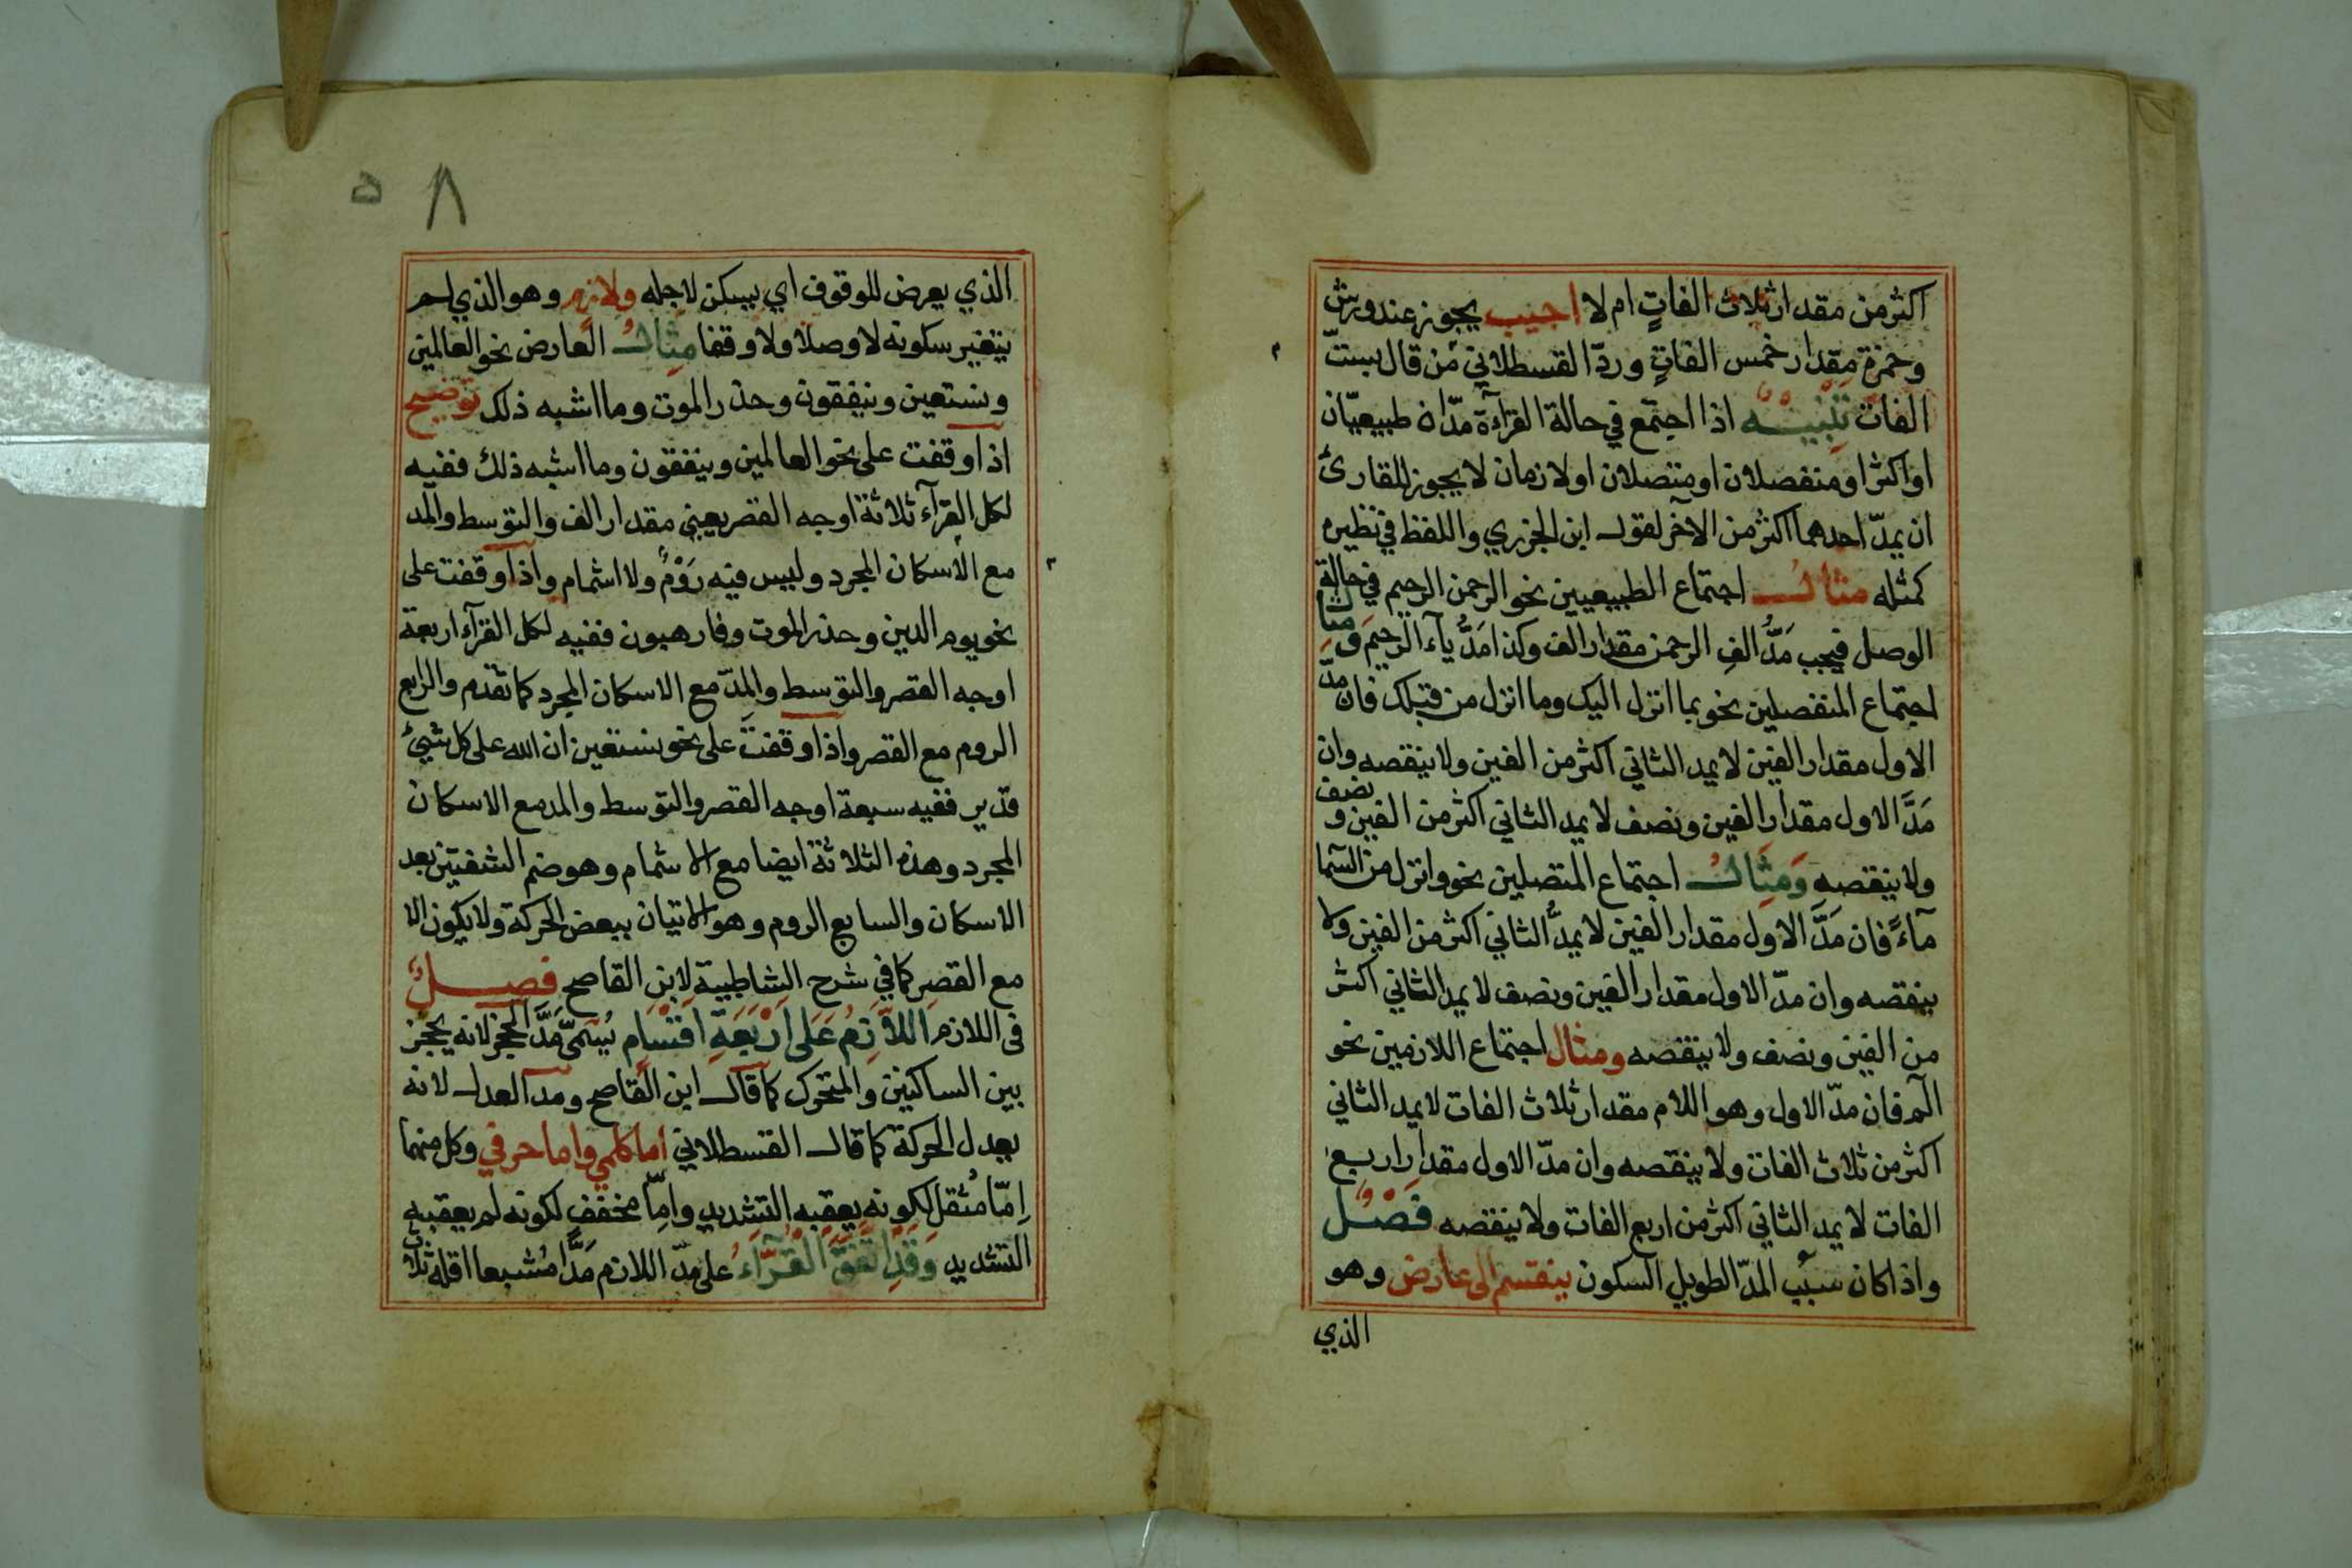 اكثر من مقدار ثلاث الفاتٍ ام لا اجيب يجوز عند ورش
وحمزة مقدار خمس الفاتٍ وردّ القسطلاني من قال بستّ
الفات تَنْبِيْهٌ اذا اجتمع في حالة القرآءة مدّان طبيعيّان
او اكثر او منفصلان او متصلان او لازمان لا يجوز للقارئ
ان يمدّ احدهما اكثر من الآخر لقول ابن الجزري واللفظ في نظيره
كمثله مثالُ اجتماع الطبيعيين نحو الرحمن الرحيم في حالة
الوصل فيجب مَدُّ الفِ الرحمن مقدار الف وكذا مَدُّ يآء الرحيم ومثال
اجتماع المنفصلين نحو بما انزل اليك وما انزل من قبلك فان مدّ
الاول مقدار الفين لا يمد الثاني اكثر من الفين ولا ينقصه وان
مَدَّ الاول مقدار الفين ونصف لا يمد الثاني اكثر من الفين ونصف
ولا ينقصه وَمِثَالُ اجتماع المتصلين نحو وانزل من السّما
مآءً فان مَدَّ الاول مقدار الفين لا يمدُّ الثاني اكثر من الفين ولا
ينقصه وان مدّ الاول مقدار الفين ونصف لا يمد الثاني اكثر
من الفين ونصف ولا ينقصه ومثال اجتماع اللازمين نحو
الٓمٓ فان مدّ الاول وهو اللام مقدار ثلاث الفات لا يمد الثاني
اكثر من ثلاث الفات ولا ينقصه وان مدّ الاول مقدار اربع
الفات لا يمد الثاني اكثر من اربع الفات ولا ينقصه فَصْلٌ
واذا كان سبب المدّ الطويل السكون ينقسم الى عارض وهو
الذي
٨ ٥
الذي يعرض للوقوف اي يسكن لاجله ولازم وهو الذي لم
يتغير سكونه لا وصلا ولا وقفا مِثَالُ العارض نحو العالمين
ونستعين وينفقون وحذر الموت وما اشبه ذلك توضيح
اذا وقفت على نحو العالمين وينفقون وما اشبه ذلك ففيه
لكل القرآء ثلاثة اوجه القصر يعني مقدار الف والتوسط والمد
مع الاسكان المجرد وليس فيه رَوْمٌ ولا اشمام واذا وقفت على
نحو يوم الدين وحذر الموت وفارهبون ففيه لكل القرآء اربعة
اوجه القصر والتوسط والمدّ مع الاسكان المجرد كما تقدم والرابع
الروم مع القصر واذا وقفتَ على نحو نستعين ان الله على كل شيئ
قدير ففيه سبعة اوجه القصر والتوسط والمد مع الاسكان
المجرد وهذه الثلاثة ايضا مع الاشمام وهو ضم الشفتين بعد
الاسكان والسابع الروم وهو الاتيان ببعض الحركة ولا يكون الا
مع القصر كما في شرح الشاطبية لابن القاصح فصلٌ
في اللازم اَللاَّزِمُ عَلى اَرْبَعَةِ اَقْسَام يُسَمَّى مَدَّ الحجز لانه يحجز
بين الساكنين والمتحرك كما قال ابن القاصح ومد العدل لانه
يعدل الحركة كما قال القسطلاني اما كلمي واما حرفي وكل منهما
اِمّا مُثقل لكونه يعقبه التشديد وامّا مخفف لكونه لم يعقبه
التشديد وَقَدِ اتَّفَقَ الْقُرَّاءُ على مدّ اللازم مَدًّا مُشبعا اقله ثلاث